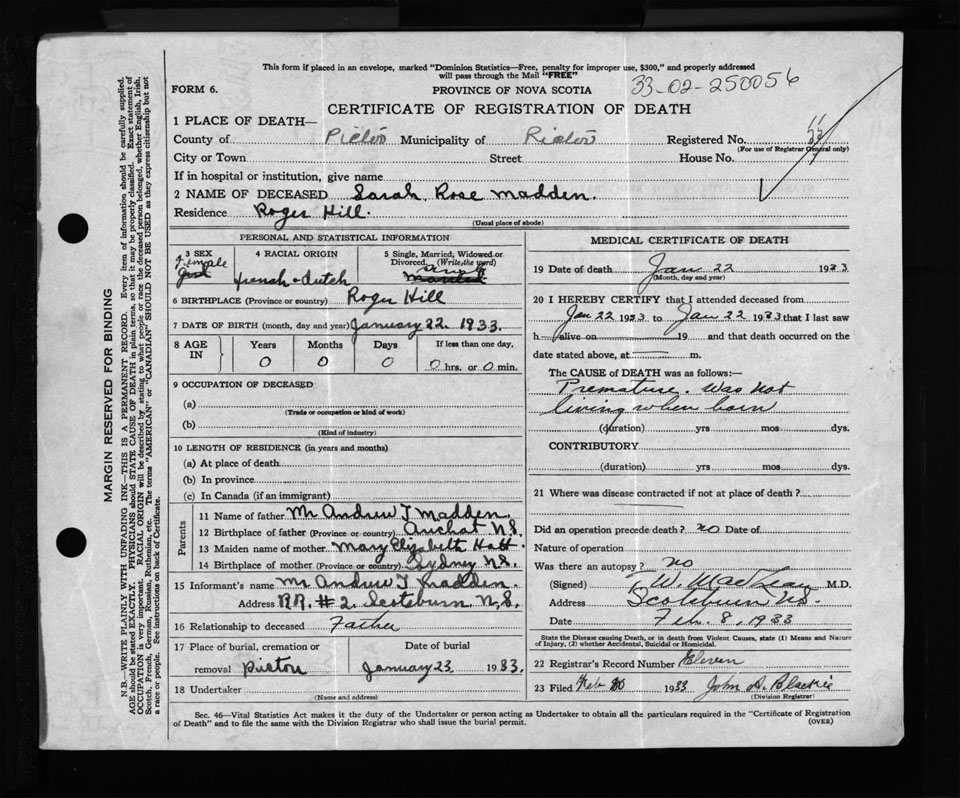 This form if placed in an envelope, marked "Dominion Statistics—Free, penalty for improper use, $300," and properly addressed
will pass through the Mail "FREE"
33-02-250056
FORM 6.
PROVINCE OF NOVA SCOTIA
CERTIFICATE OF REGISTRATION OF DEATH
1 PLACE OF DEATH—
County of Pictou Municipality of Pictou Registered No.
(For use of Registrar General only)
City or Town Street House No.
If in hospital or institution, give name
2 NAME OF DECEASED Sarah Rose Madden.
Residence Roger Hill.
(Usual place of abode)
PERSONAL AND STATISTICAL INFORMATION
3 SEX 4 RACIAL ORIGIN 5 Single, Married, Widowed or
Divorced (Write the word)
Female french + dutch Single
6 BIRTHPLACE (Province or country) Roger Hill
7 DATE OF BIRTH (month, day and year) January 22. 1933.
8 AGE IN Years Months Days If less than one day,
0 0 0 0 hrs. or 0 min.
9 OCCUPATION OF DECEASED
(a)
(Trade or occupation or kind of work)
(b)
(Kind of industry)
10 LENGTH OF RESIDENCE (in years and months)
(a) At place of death
(b) In province
(c) In Canada (if an immigrant)
Parents
11 Name of father Mr Andrew J Madden.
12 Birthplace of father (Province or country) Auchat N.S.
13 Maiden name of mother Mary Elyzabeth Hatt
14 Birthplace of mother (Province or country) Sydney N.S.
15 Informant's name Mr Andrew J Madden.
Address R.R. #2. Scotsburn. N.S.
16 Relationship to deceased Father
17 Place of burial, cremation or Date of burial
removal Pictou January 23 1933.
18 Undertaker
(Name and address)
MEDICAL CERTIFICATE OF DEATH
19 Date of death Jan 22 1933
(Month, day and year)
20 I HEREBY CERTIFY that I attended deceased from
Jan 22 1933 to Jan 22 1933 that I last saw
h alive on 19 and that death occurred on the
date stated above, at m.
The CAUSE of DEATH was as follows:—
Premature. Was not
living when born
(duration) yrs mos dys.
CONTRIBUTORY
(duration) yrs mos dys.
21 Where was disease contracted if not at place of death?
Did an operation precede death? no Date of
Nature of operation
Was there an autopsy? no
(Signed) W. MacLean M.D.
Address Scotsburn N.S.
Date Feb. 8, 1933
State the Disease causing Death, or in death from Violent Causes, state (1) Means and Nature
of Injury, (2) whether Accidental, Suicidal or Homicidal.
22 Registrar's Record Number Eleven
23 Filed Feb 20 1933 John D. Blackie
(Division Registrar)
Sec. 46—Vital Statistics Act makes it the duty of the Undertaker or person acting as Undertaker to obtain all the particulars required in the "Certificate of Registration
of Death" and to file the same with the Division Registrar who shall issue the burial permit.
(OVER)
MARGIN RESERVED FOR BINDING
N.B.—WRITE PLAINLY WITH UNFADING INK—THIS IS A PERMANENT RECORD. Every item of information should be carefully supplied.
AGE should be stated EXACTLY. PHYSICIANS should STATE CAUSE OF DEATH in plain terms, so that it may be properly classified. Exact statement of
OCCUPATION is very important. RACIAL ORIGIN will be described by stating to what people or race the deceased person belonged, whether English, Irish,
Scotch, French, German, Russian, Ruthenian, etc. The terms "AMERICAN" or "CANADIAN" SHOULD NOT BE USED as they express citizenship but not
a race or people. See instructions on back of Certificate.